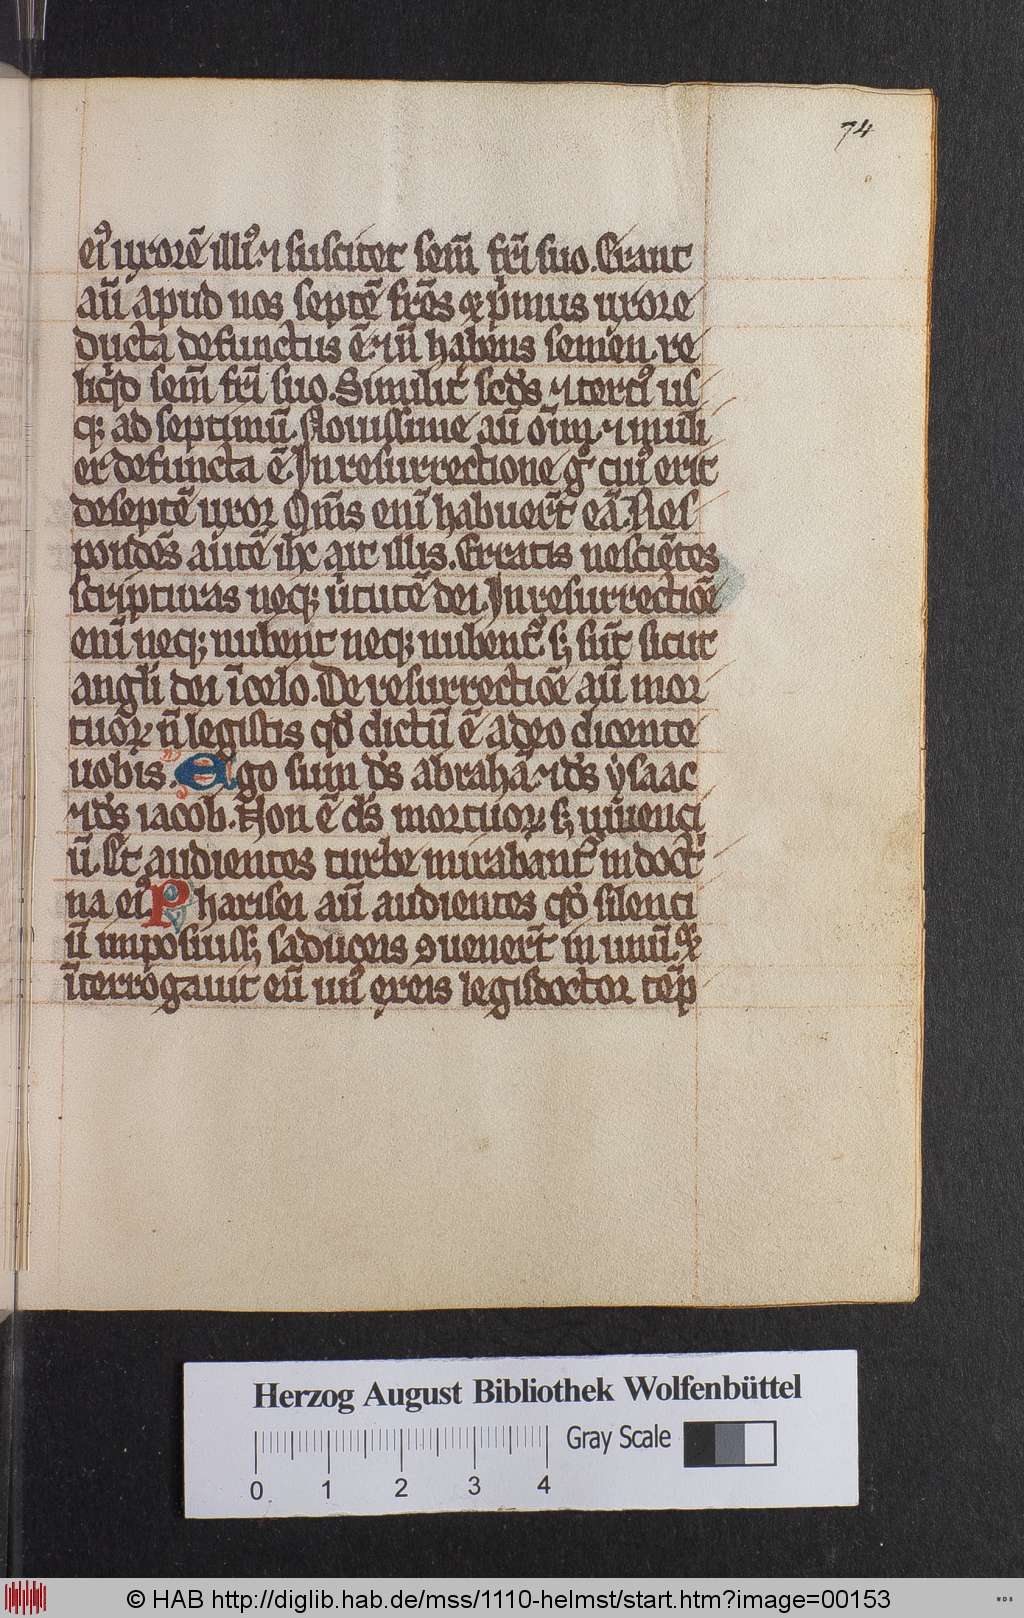 74
eiꝰ uxorē illiꝰ ⁊ suscitet sem̄ fr̄i suo. Erant
aū apud nos septē fr̄es ⁊ pͥmus uxore
ducta defunctus ē. ⁊ ñ habens semen. re
liqͥd sem̄ fr̄i suo. Similit᷑ scd̄s ⁊ terciꝰ us
qꝫ ad septimū. Nouissime aū om̄m ⁊ muli
er defuncta ē. In resurrectione gͦ cuiꝰ erit
de septē uxor Om̄s eni habuer̄t eā. Res
pondēs autē ih̄c ait illis. Erratis nesciētes
scripturas neqꝫ ūtutē dei. In resurrectiōe
eni neqꝫ nubent neqꝫ nubent᷑. sꝫ sūt sicut
angl̄i dei ī celo. De resurrectiōe aū mor
tuoꝝ ñ legistis qd̄ dictū ē a deo dicente
uobis. Ego sum ds̄ abrahā. ⁊ ds̄ ysaac
⁊ ds̄ iacob. Non ē ds̄ mortuoꝝ. sꝫ uiuenci
ū. Et audientes turbe mirabant᷑ in doctͥ
na eiꝰ Pharisei aū audientes qd̄ silenci
ū imposuissꝫ saduceis ꝯuener̄t in unū. ⁊
īterrogauit eū unꝰ ex eis legisdoctor tēp
Herzog August Bibliothek Wolfenbüttel
Gray Scale
0 1 2 3 4
© HAB http://diglib.hab.de/mss/1110-helmst/start.htm?image=00153